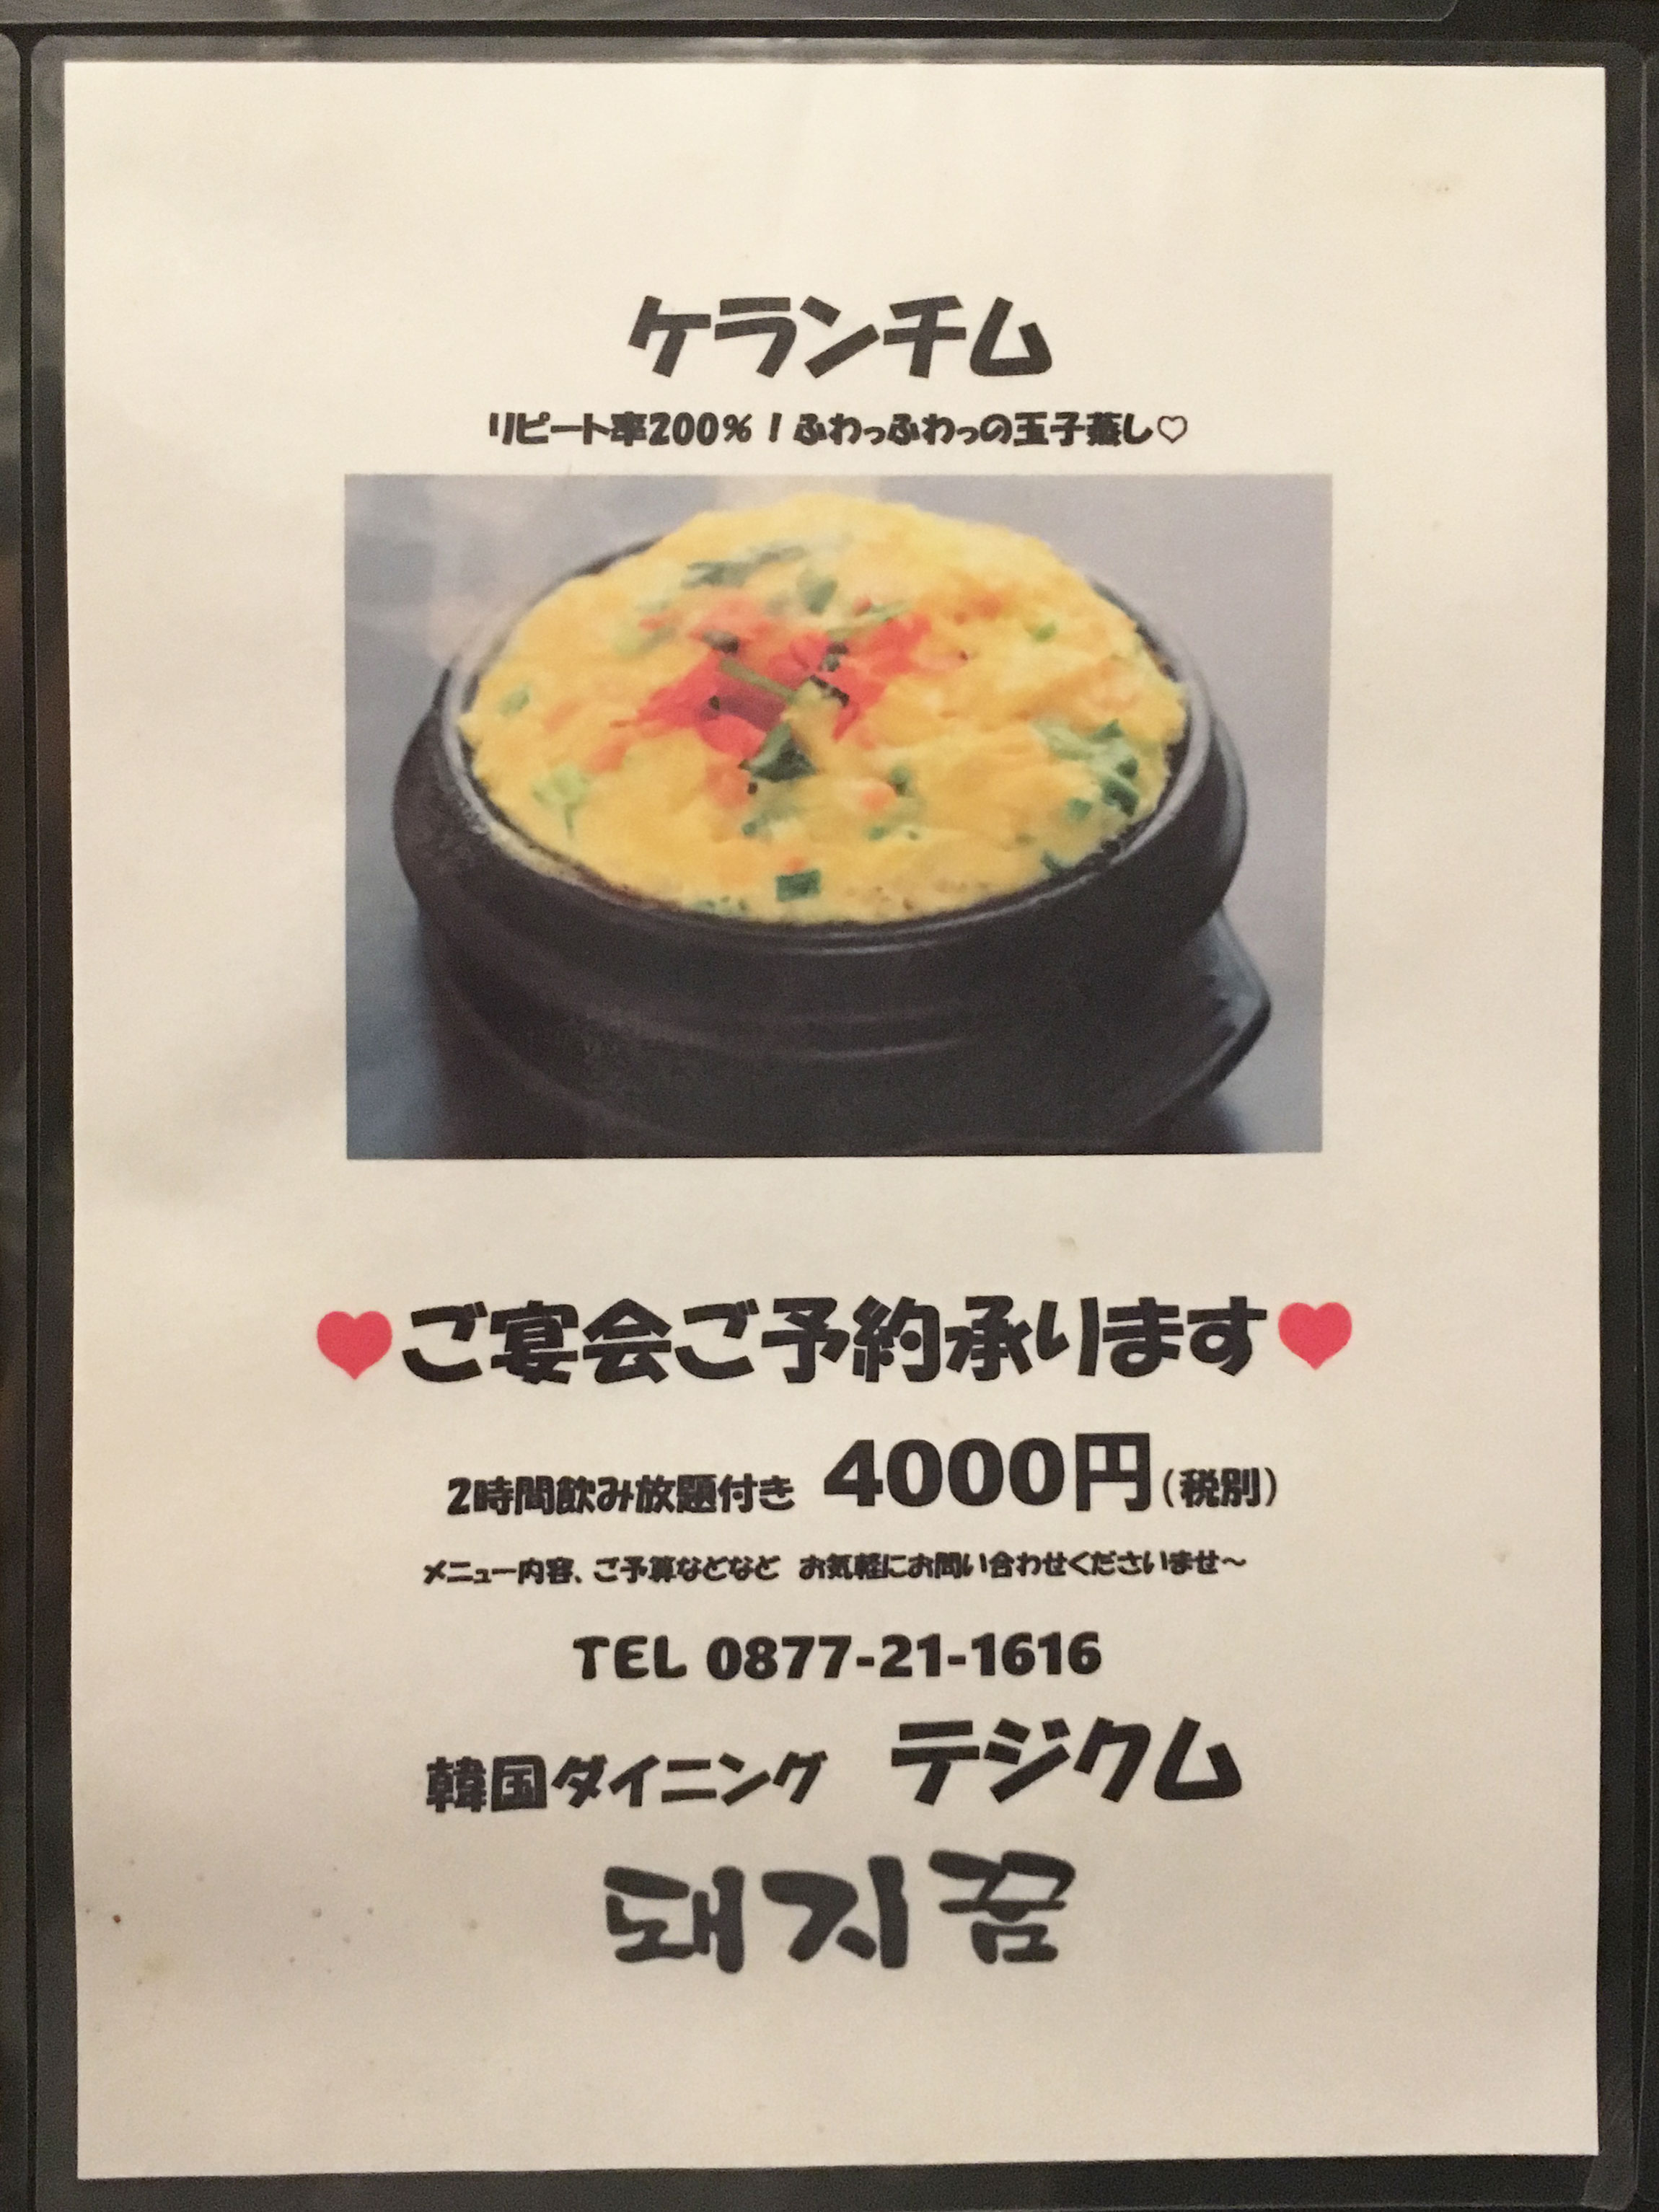 ケランチム
リピート率200%!ふわっふわっの玉子蒸し♡
♥ご宴会ご予約承ります♥
2時間飲み放題付き 4000円(税別)
メニュー内容、ご予算などなど お気軽にお問い合わせくださいませ～
TEL 0877-21-1616
韓国ダイニング テジクム
돼지꿈